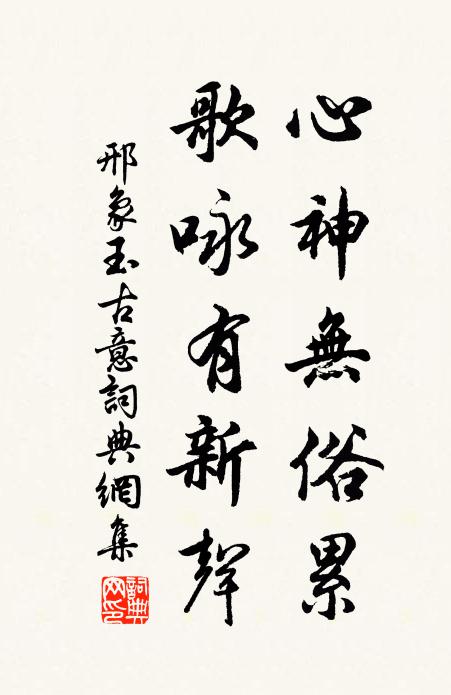 心神無俗累
歌咏有新聲
邢象玉古意詞典網集
詞典網印